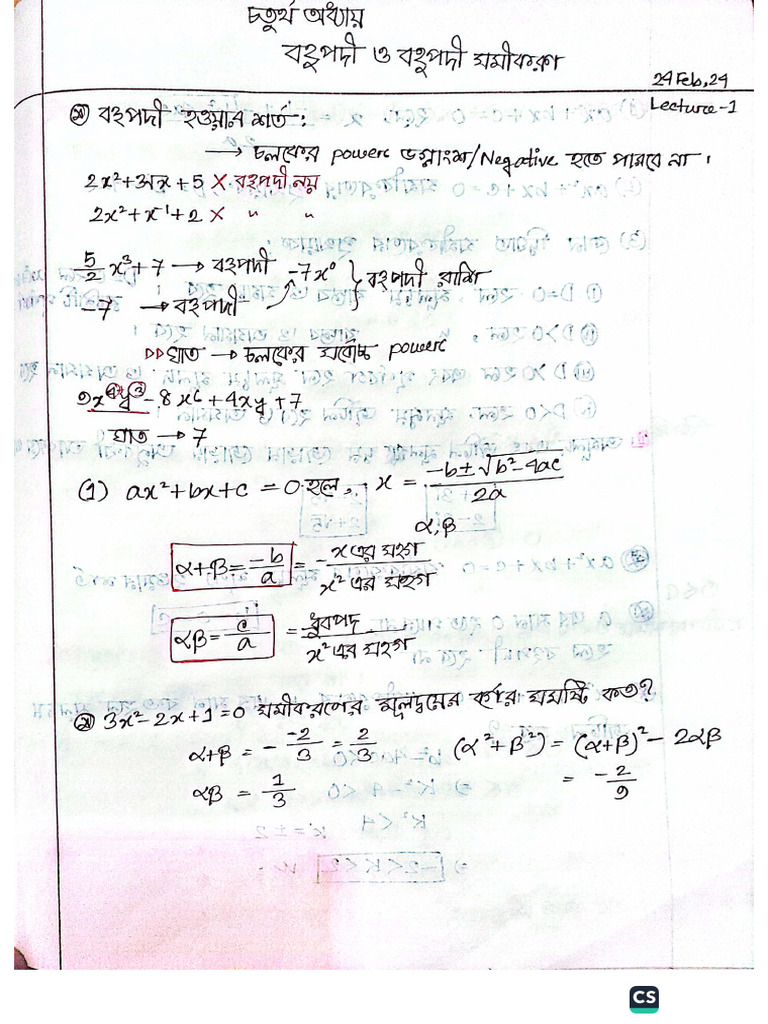 চতুর্থ অধ্যায়
বহুপদী ও বহুপদী সমীকরণ
24 Feb, 24
Lecture-1
বহুপদী হওয়ার শর্ত:
→ চলকের power ভগ্নাংশ/Negative হতে পারবে না।
+ 5 X বহুপদী নয়
2x² + x⁻¹ + 2 X " "
5/2 x³ + 7 → বহুপদী -7x⁰ } বহুপদী রাশি
-7 → বহুপদী
▷▷ ঘাত → চলকের সর্বোচ্চ power
- 8x⁶ + 4xy + 7
ঘাত → 7
(1) ax² + bx + c = 0 হলে, x = (-b ± √(b² - 4ac))/2a
α, β
α+β = -b/a = - x এর সহগ/x² এর সহগ
αβ = c/a = ধ্রুবপদ/x² এর সহগ
3x² - 2x + 1 = 0 সমীকরণের মূলদ্বয়ের বর্গের সমষ্টি কত?
α+β = - -2/3 = 2/3 (α² + β²) = (α+β)² - 2αβ
αβ = 1/3 = -2/9
CS